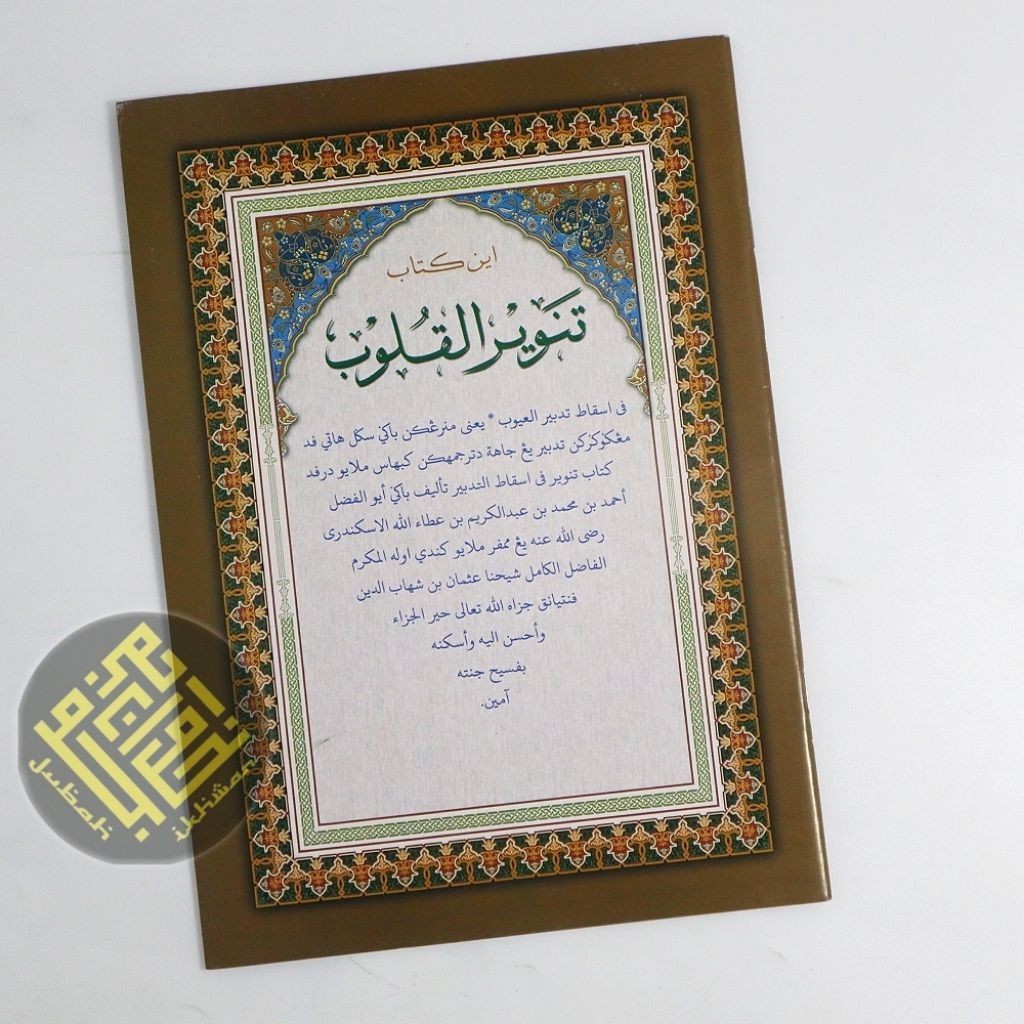 اين كتاب
تنوير القلوب
فى اسقاط تدبير العيوب * يعنى منرڠكن باݢي سݢل هاتي فد
مڠكوكركن تدبير يڠ جاهة دترجمهكن كبهاس ملايو درفد
كتاب تنوير فى اسقاط التدبير تأليف باݢي أبو الفضل
أحمد بن محمد بن عبدالكريم بن عطاء الله الاسكندرى
رضى الله عنه يڠ ممفر ملايو كندي اوله المكرم
الفاضل الكامل شيحنا عثمان بن شهاب الدين
فنتيانق جزاه الله تعالى حير الجزاء
وأحسن اليه وأسكنه
بفسيح جنته
آمين.
Jualah